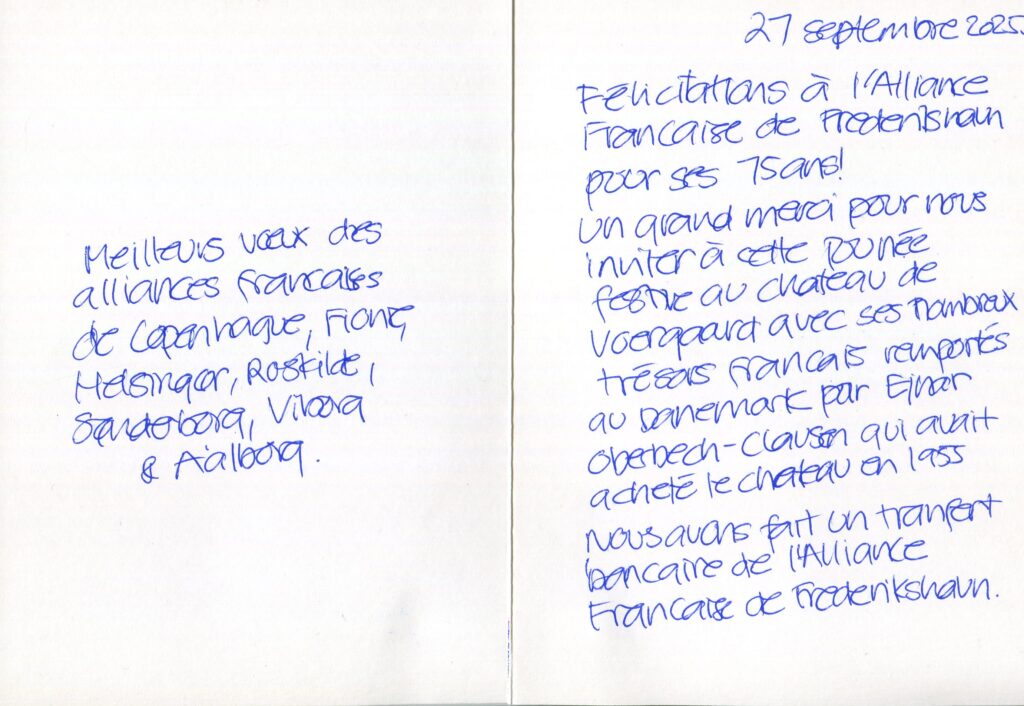 Meilleurs vœux des
alliances francaises
de Copenhague, Fionie,
Helsingør, Roskilde,
Sønderborg, Viborg
& Aalborg.
27 septembre 2025
Félicitations à l'Alliance
Francaise de Frederikshavn
pour ses 75 ans!
Un grand merci pour nous
inviter à cette journée
festive au chateau de
Voergaard avec ses nombreux
trésors francais remportés
au Danemark par Ejnar
Oberbech-Clausen qui avait
acheté le chateau en 1955
Nous avons fait un tranfert
bancaire de l'Alliance
Francaise de Frederikshavn.